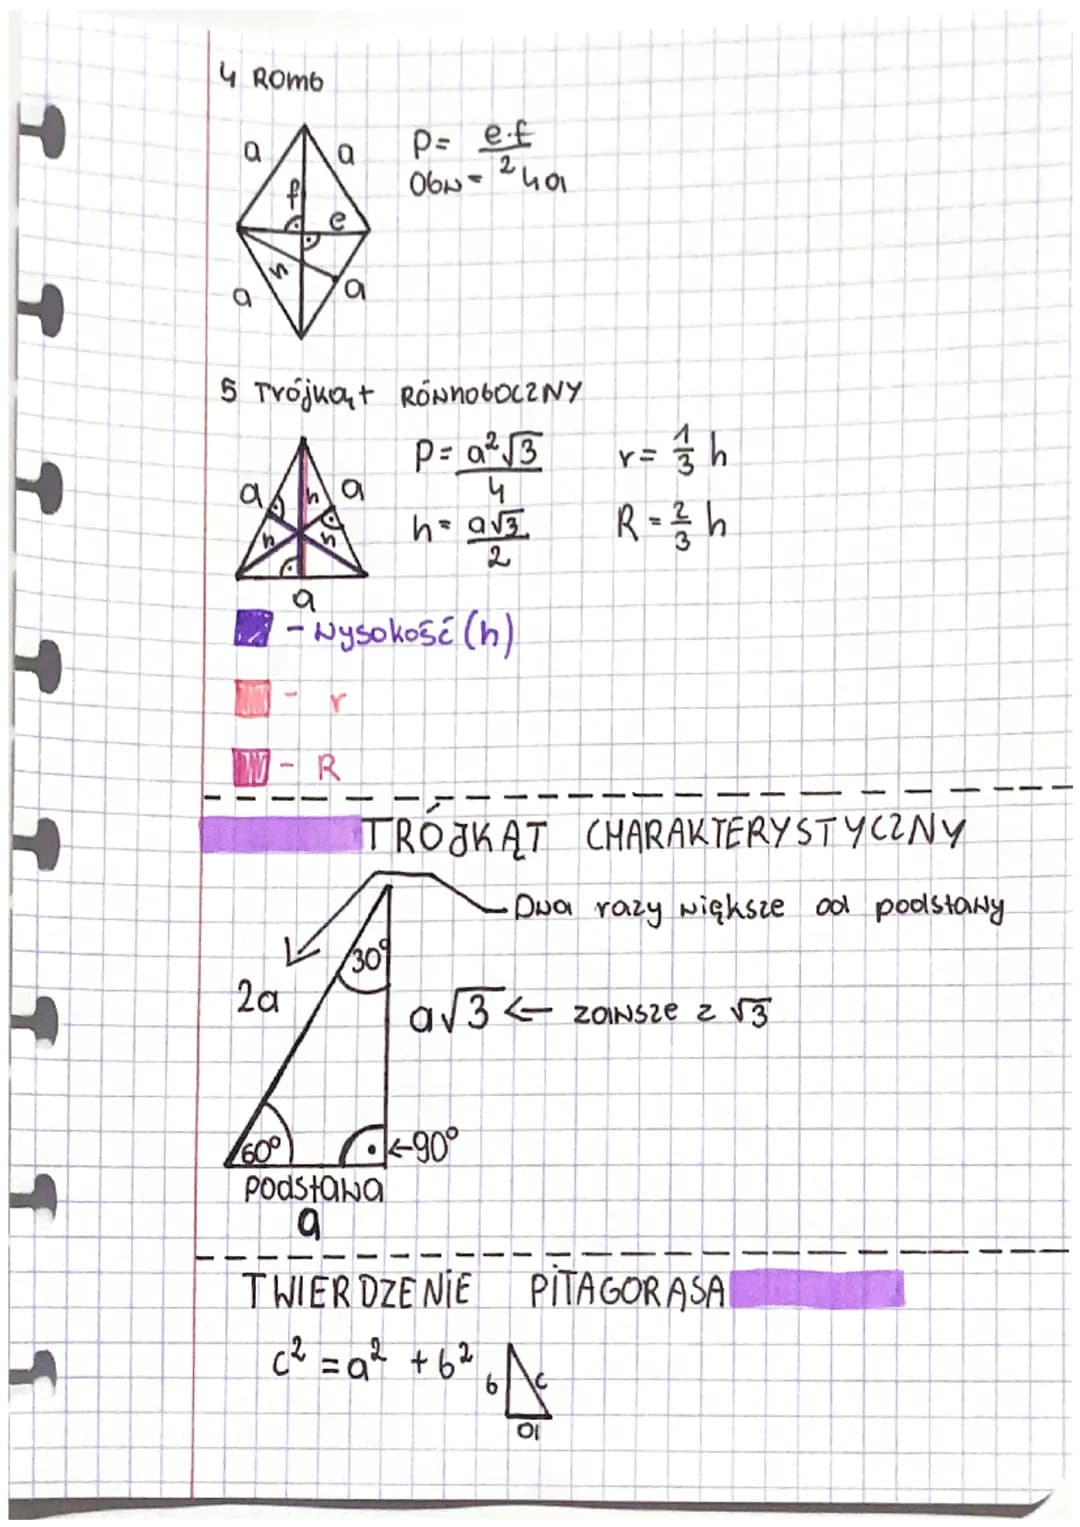 4 Romb
a a
f
e
h
a a
P= e·f/2
Obw= 4a
5 Trójkąt RÓWNOBOCZNY
a h a
h h
a
P= a²√3/4
h= a√3/2
r= 1/3 h
R= 2/3 h
- Wysokość (h)
- r
- R
TRÓJKĄT CHARAKTERYSTYCZNY
Dwa razy większe od podstawy
30°
2a
a√3 ← zawsze z √3
60°
←90°
Podstawa
a
TWIERDZENIE PITAGORASA
c² = a² + b²
b c
a